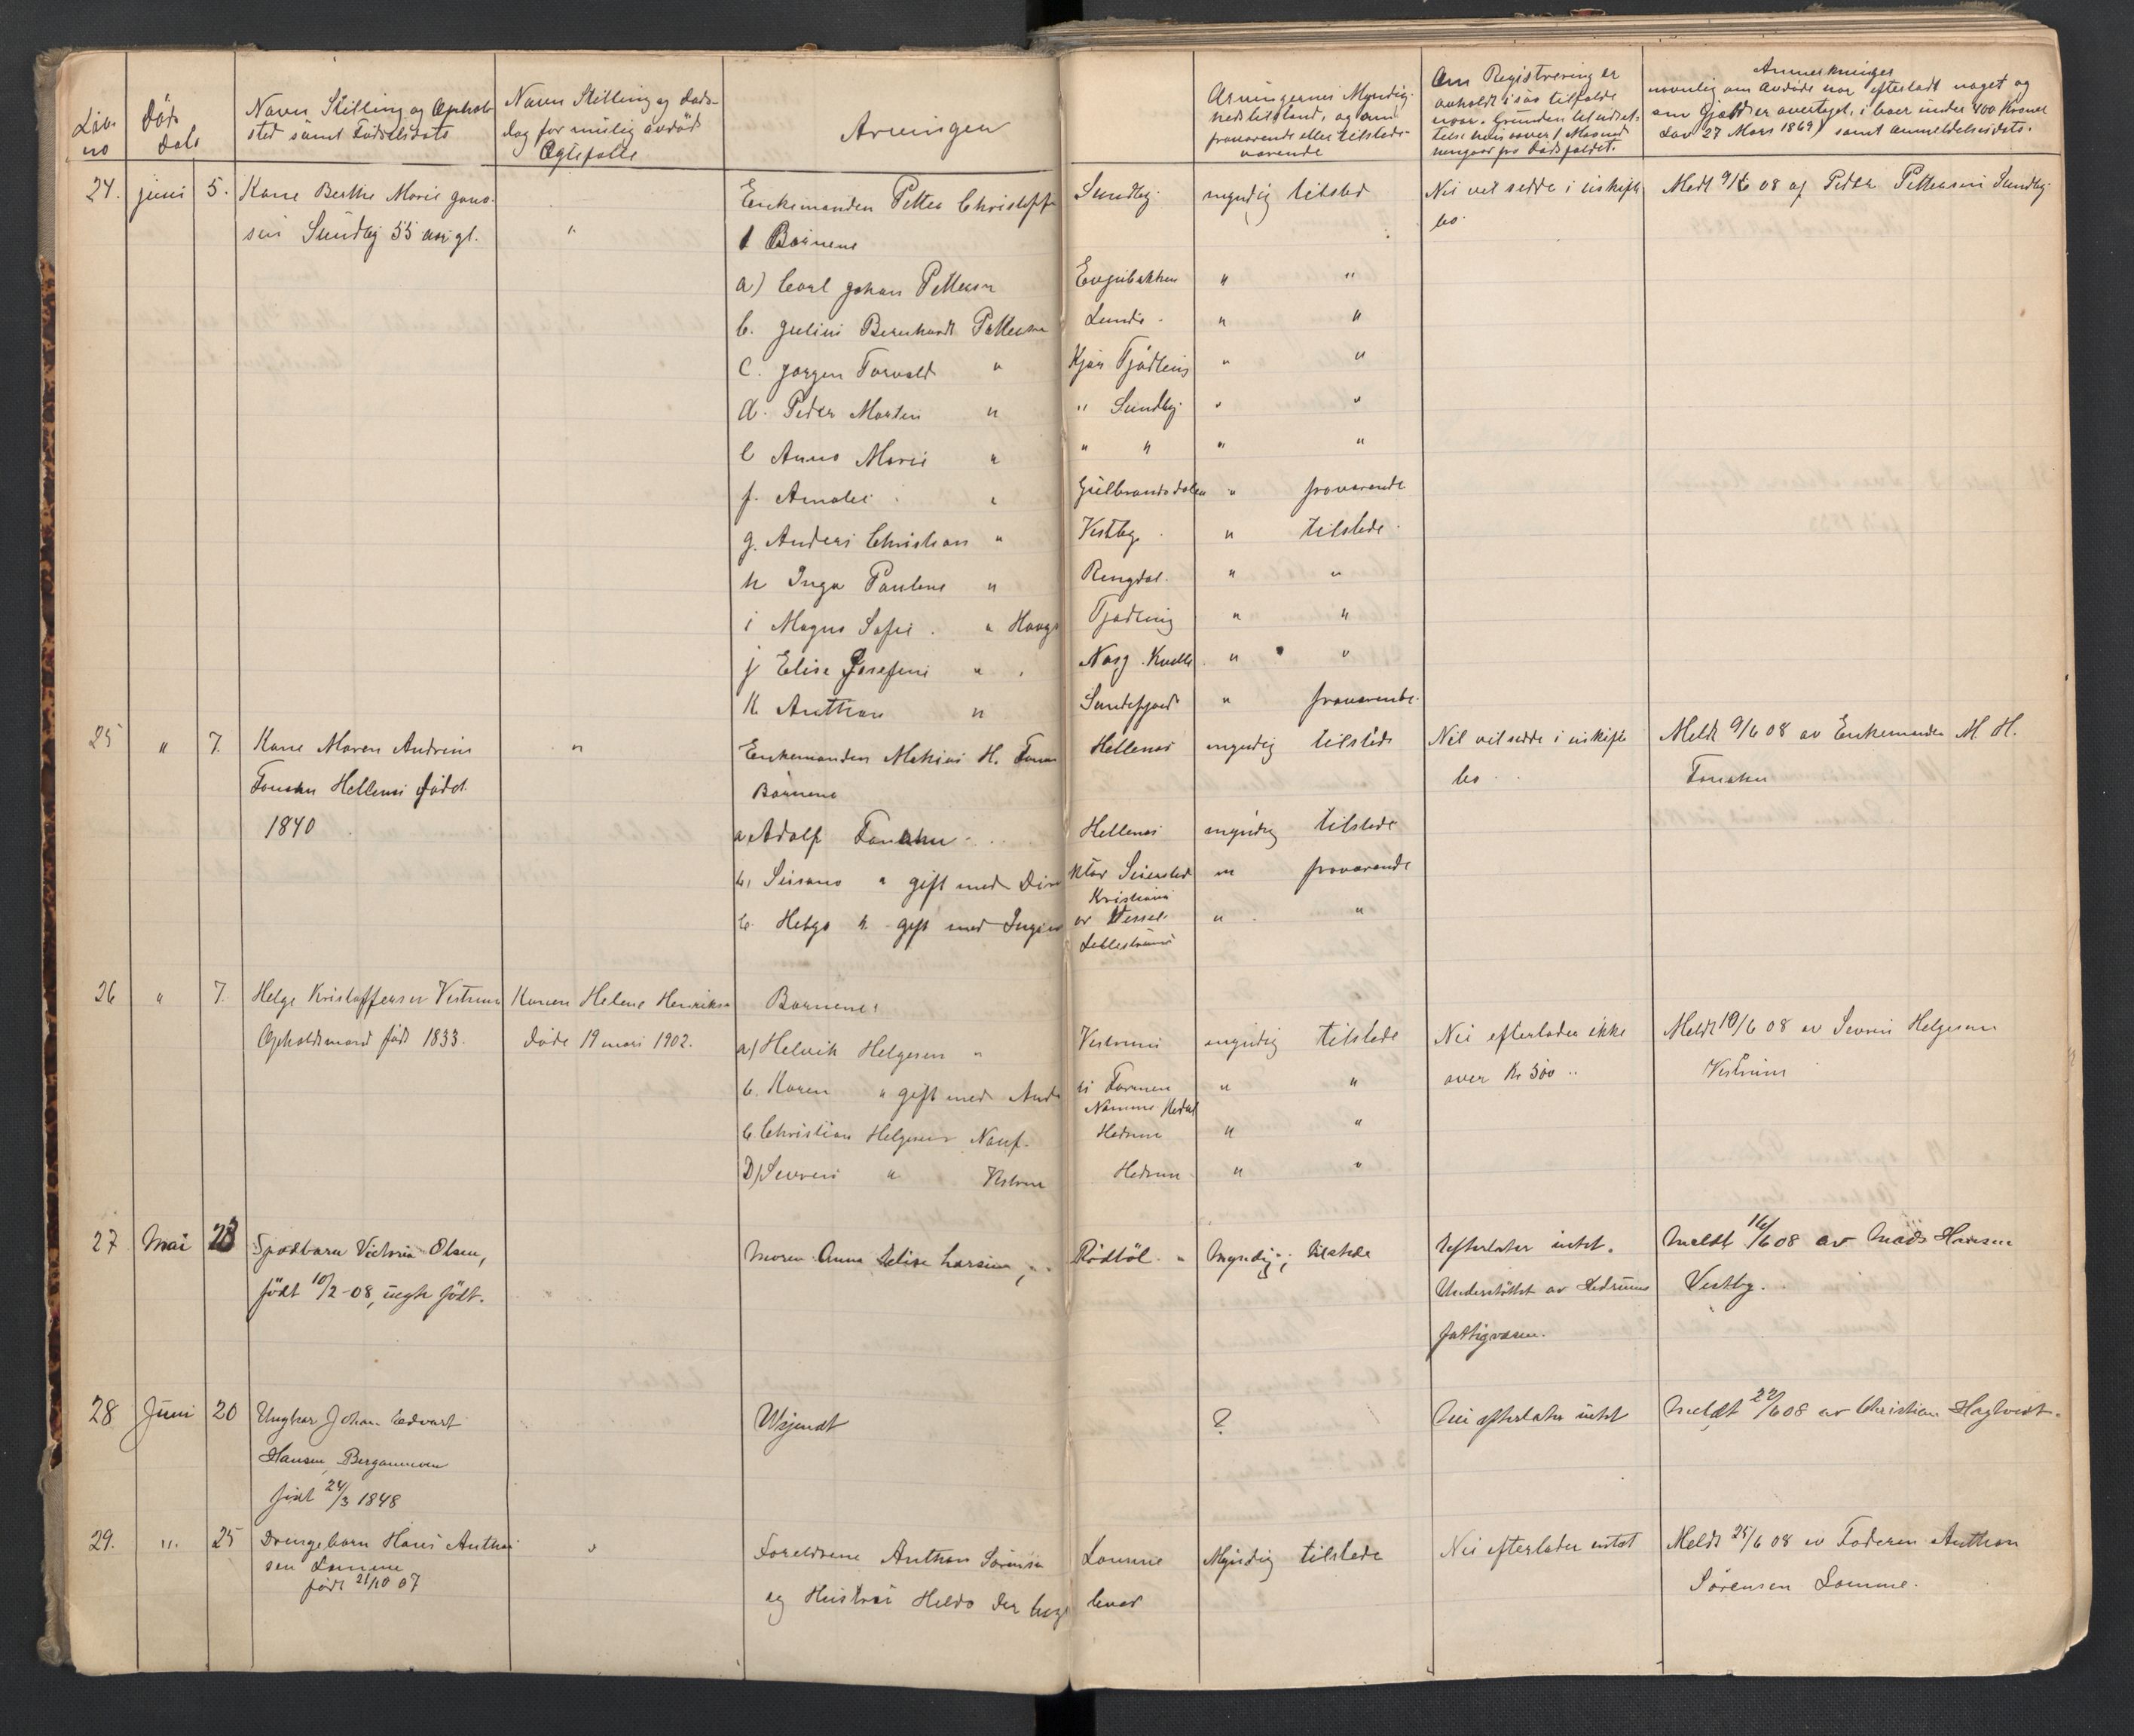 Løb. no
Døds dato
Navn Stilling og Ophold-
sted samt Fødselsdato
Navn Stilling og Døds-
dag for mulig avdød
Ægtefælle
Arvinger
Arvingernes Myndig-
hedstilstand, og om
fraværende eller tilstede-
værende
Om Registrering er
avholdt i saa tilfælde
naar. Grunden til udsæt-
telse hvis over 1 Maaned
hengaar fra Dødsfaldet.
Anmerkninger
navnlig om Avdøde har efterladt noget og
om Gjæld er overtaget, i boer under 400 Kroner
Lov 27 Mars 1869) samt anmeldelsesdato.
24. juni 5. Kone Berthe Marie
sen Sundby 55 aar gl. "
Enkemanden Petter Christoff Sundby myndig tilsted
Nei vil sidde i uskifte
bo.
Meldt 9/6 08 af Peder Pettersen Sundby
Børnene
a) Carl Johan Pettersen Engebakken " "
b. Julius Bernhardt Pettersen Lunde " "
C. Jørgen Torvald " Kjær Tjødling " "
d. Peder Martin " " Sundby " "
e Anna Marie " " " " "
f. Amalie " Gulbrandsdalen " fraværende
g. Anders Christian " Vestby " tilstede
h Inga Pauline " Ringdal. " "
i Magna Sofie " Haug Tjødling " "
j Elise Josefine " Kvelle " "
k Anthon " Sandefjord " fraværende.
25 " 7. Kone Maren Andrine
Hellenes født
1840
"
Enkemanden Mathias H. Hellenes myndig tilstede
Nei vil sidde i uskifte
bo
Meldt 9/6 08 av Enkemanden M. H.
Børnene
a Adolf Hellenes myndig tilstede
b, " gift med Dire ktør Seiersted " fraværende
Kristiania
c. Helga " gift med Ingeni ør Wessel " "
Lillestrøm
26 " 7. Helge Kristoffersen Vestrum
Opholdsmand født 1833.
Konen Helene Henriksen
døde 19 mai 1902.
Børnene:
a) Helvik Helgesen " Vestrum myndig tilstede
Nei efterlader ikke
over Kr 500 ..
Meldt 10/6 08 av Severin Helgesen
Vestrum
b. Karen " gift med And rs Farmen " "
Namme Hedrum
C. Christian Helgesen Hedrum " "
D) Severin " Vestrum Hedrum " "
27 Mai 28 Spædbarn Victoria Olsen,
født 10/2-08, uegte født.
"
Moren Anna Elise Larsen, Rødbøl " Myndig; tilstede
Efterlater intet.
Understøttet av Hedrums
fattigvæsen.
Meldt 16/6 08 av Mads Hansen
Vestby.
28 Juni 20 Ungkar Johan Edvart
Hansen, Berganmoen
født 24/3 1848
Ukjendt
?
Nei efterlater intet
Meldt 22/6 08 av Christian Hagtvedt.
29. " 25 Drengebarn Hans Anthon
sen Lamme
født 21/10 07
"
Forældrene Anthon Sørensen Lamme Myndig tilstede
og Hustru Hilda der begge lever
Nei efterlader intet
Meldt 25/6 08 av Faderen Anthon
Sørensen Lamme.